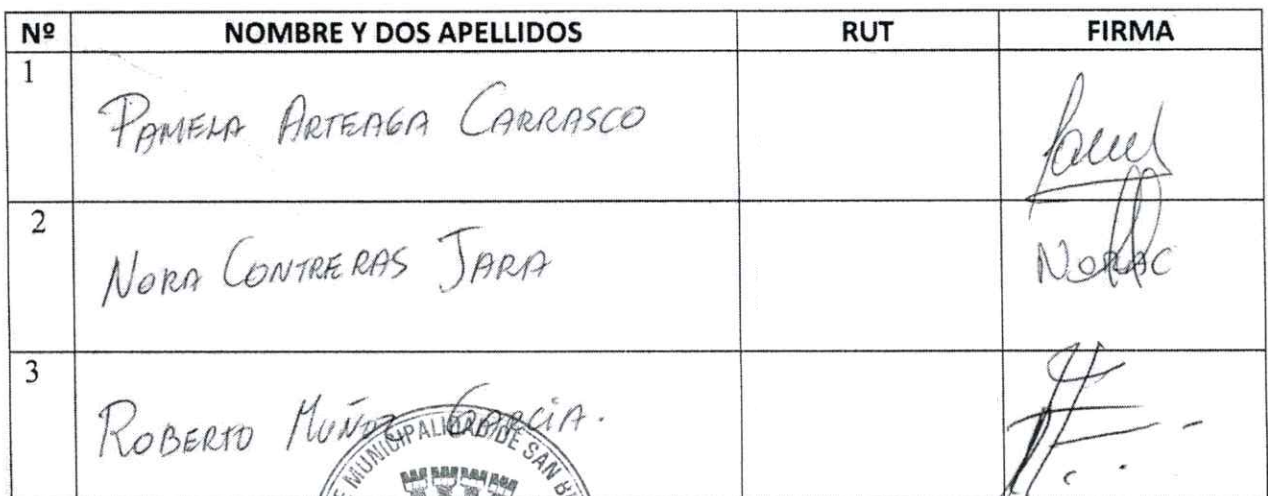 Nº NOMBRE Y DOS APELLIDOS RUT FIRMA
1 PAMELA ARTEAGA CARRASCO
2 NORA CONTRERAS JARA NORAC
3 ROBERTO MUÑOZ GARCIA.
MUNICIPALIDAD DE SAN